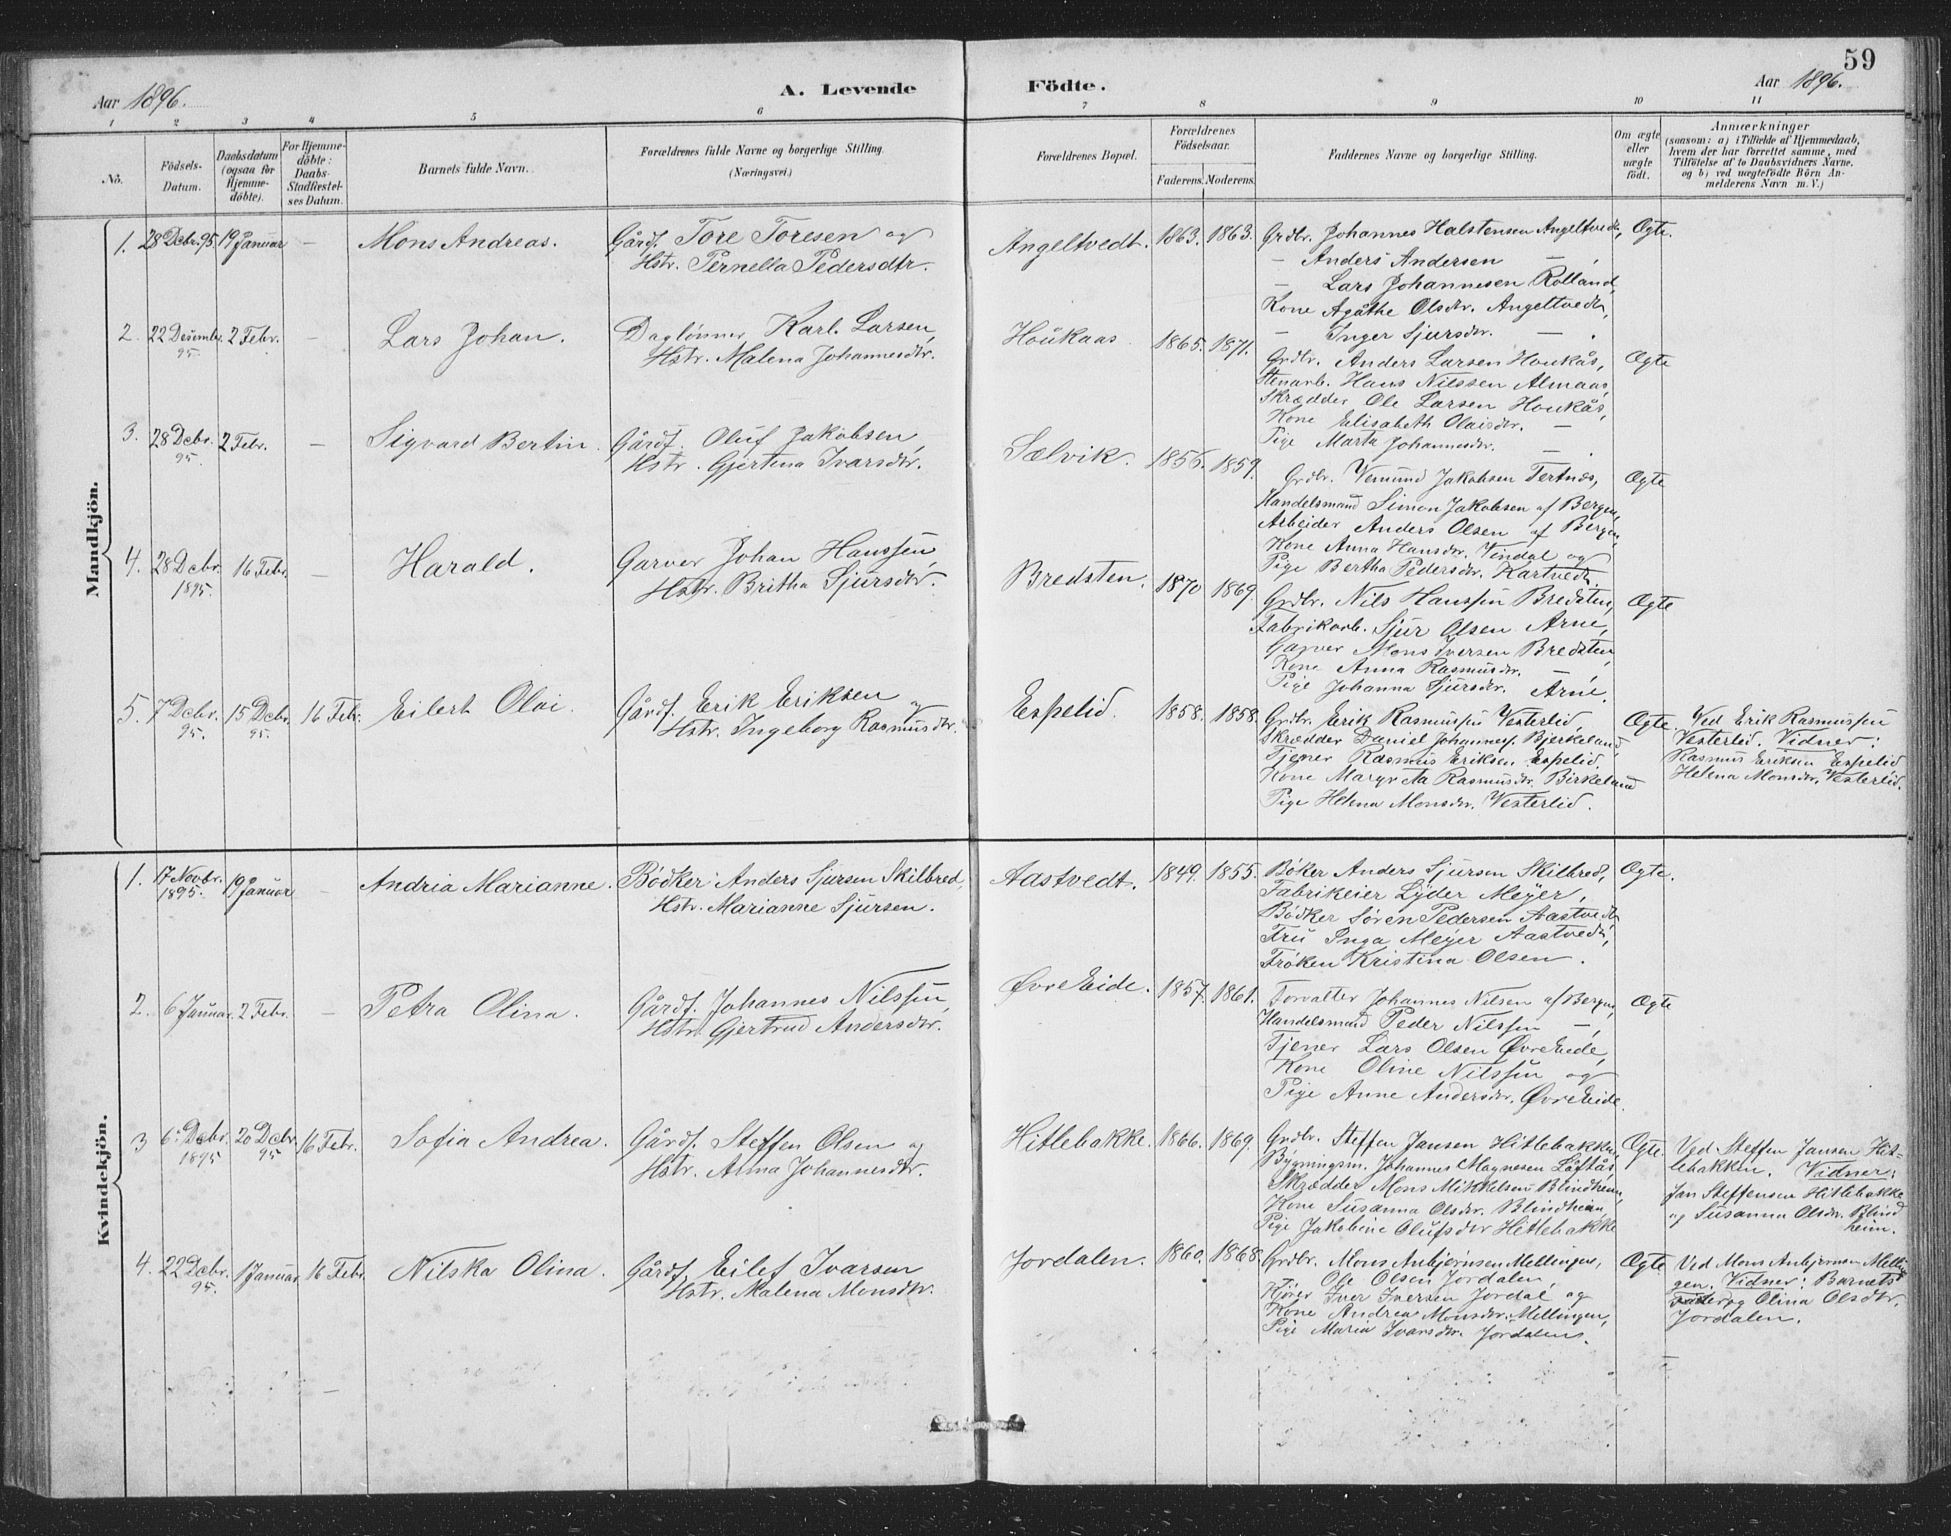 59
Aar 1896.
A. Levende Födte.
Aar 1896.
1 2 3 4 5 6 7 8 9 10 11
No.
Födsels-Datum.
Daabsdatum (ogsaa for Hjemme-döbte).
For Hjemme-döbte: Daabs-Stadfæstel-ses Datum.
Barnets fulde Navn.
Forældrenes fulde Navne og borgerlige Stilling. (Næringsvei.)
Forældrenes Bopæl.
Forældrenes Födselsaar.
Faderens. Moderens.
Faddernes Navne og borgerlige Stilling.
Om ægte eller uægte födt.
Anmærkninger
(saasom: a) i Tilfælde af Hjemmedaab, hvem der har forrettet samme, med Tilföielse af to Daabsvidners Navne, og b) ved uægtefödte Börn An-melderens Navn m. V.)
Mandkjön.
1. 28 Dcbr. 95. 19 Januar — Mons Andreas.
Gårdf. Tore Toresen og
Hstr. Pernella Pedersdtr.
Angeltvedt. 1863. 1863.
Grdbr. Johannes Halstensen Angeltvedt, Ægte.
— Anders Andersen —,
— Lars Johannesen Rolland,
Kone Agåthe Olsdtr. Angeltvedt,
— Inger Sjursdtr. — .
2. 22 Desembr. 95. 2 Febr. — Lars Johan.
Daglønner Karl Larsen,
Hstr. Malena Johannesdtr.
Houkaas 1865. 1871.
Grdbr. Anders Larsen Houkås, Ægte
Stenarb. Hans Nilssen Almaas,
Skrædder Ole Larsen Houkås,
Kone Elisabeth Olaisdtr. —
Pige Marta Johannesdtr. — .
3. 28 Dcbr. 95. 2 Febr. — Sigvard Bertin.
Gårdf. Oluf Jakobsen,
Hstr. Gjertina Ivarsdtr.
Sælvik. 1856. 1859.
Grdbr. Vemund Jakobsen Tertnæs, Ægte
Handelsmand Simon Jakobsen af Bergen,
Arbeider Anders Olsen af Bergen,
Kone Anna Hansdtr. Vindal og
Pige Bertha Pedersdtr. Kartvedt.
4. 28 Dcbr. 1895. 16 Febr. — Harald.
Garver Johan Hanssen,
Hstr. Britha Sjursdtr.
Bredsten. 1870 1869.
Grdbr. Nils Hanssen Bredsten, Ægte
Fabrikarb. Sjur Olsen Arne,
Garver Mons Iversen Bredsten,
Kone Anna Rasmusdtr. —
Pige Johanna Sjursdtr. Arne.
5. 7 Dcbr. 95. 15 Dcbr. 95. 16 Febr. Eilert Olai.
Gårdf. Erik Eriksen og
Hstr. Ingeborg Rasmusdtr.
Espelid. 1858. 1858.
Grdbr. Erik Rasmussen Vesterlid, Ægte.
Skrædder Daniel Johannes. Bjerkeland,
Tjener Rasmus Eriksen Espelid,
Kone Margreta Rasmusdtr. Birkeland
Pige Helena Monsdtr. Vesterlid.
Ved Erik Rasmussen
Vesterlid. Vidner:
Rasmus Eriksen Espelid
Helena Monsdtr. Vesterlid.
Kvindekjön.
1. 17 Novbr. 1895. 19 Januar — Andria Marianne.
Bødker Anders Sjursen Skilbred,
Hstr. Marianne Sjursen.
Aastvedt. 1849. 1855.
Bøker Anders Sjursen Skilbred, Ægte.
Fabrikeier Lyder Meyer,
Bødker Søren Pedersen Aastvedt
Fru Inga Meyer Aastvedt,
Frøken Kristina Olsen.
2. 6 Januar. 2 Febr. — Petra Olina.
Gårdf. Johannes Nilssen,
Hstr. Gjertrud Andersdtr.
Øvre Eide. 1857. 1861.
Forvalter Johannes Nilsen af Bergen, Ægte
Handelsmand Peder Nilssen —,
Tjener Lars Olsen Øvre Eide,
Kone Oline Nilssen og
Pige Anne Andersdtr. Øvre Eide.
3 6. Dcbr. 1895 20 Dcbr. 95 16 Febr. Sofia Andrea.
Gårdf. Steffen Olsen og
Hstr. Anna Johannesdtr.
Hitlebakke. 1866. 1869.
Grdbr. Steffen Jansen Hitlebakken, Ægte.
Bygningsm. Johannes Magnesen Løftås
Skrædder Mons Mikkelsen Blindheim,
Kone Susanna Olsdtr. Blindheim,
Pige Jakobine Olufsdtr Hitlebakke
Ved Steffen Jansen Hit-
lebakken. Vidner:
Jan Steffensen Hitlebakke
og Susanna Olsdtr. Blind
heim.
4. 22 Dcbr. 95. 1 Januar. 16 Febr. Nilska Olina.
Gårdf. Eilef Ivarsen
Hstr. Malena Monsdtr.
Jordalen. 1860. 1868.
Grdbr. Mons Anbjørnsen Mellingen, Ægte
Ole Olsen Jordalen,
Kjører Iver Iversen Jordal og
Kone Andrea Monsdtr. Mellingen,
Pige Maria Ivarsdtr. Jordalen.
Ved Mons Anbjørnsen Mellin
gen. Vidner: Barnets
Fader og Olina Olsdtr.
Jordalen.